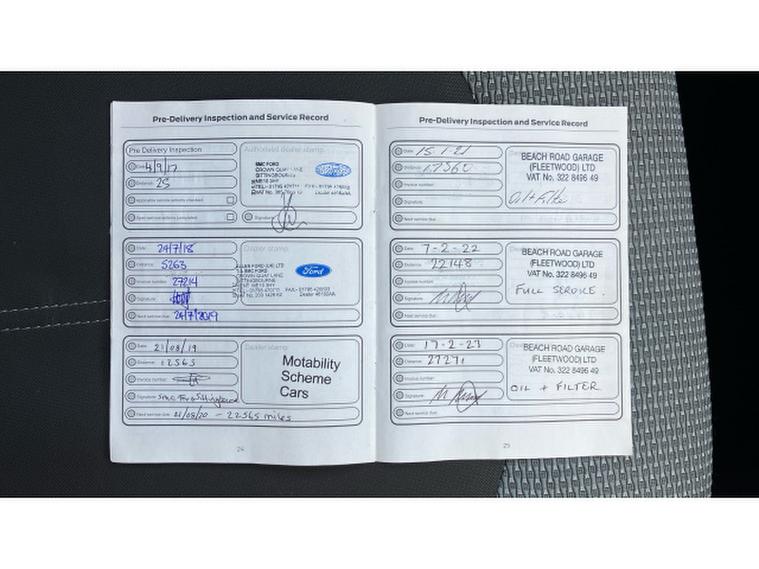 Pre-Delivery Inspection and Service Record
Pre Delivery Inspection
Authorised dealer stamp
Date 4/9/17
Distance: 25
Signature:
SMC FORD
CROWN QUAY LANE
SITTINGBOURNE
Ford
Date: 24/7/18
Distance: 5263
Invoice number: 27214
Signature:
Next service due: 24/7/2019
Dealer stamp
ALLEN FORD (UK) LTD
SMC FORD
CROWN QUAY LANE
SITTINGBOURNE
Ford
Date: 21/08/19
Distance: 12565
Invoice number:
Signature:
Next service due: 21/08/20 - 22565 miles
Dealer stamp
Motability
Scheme
Cars
24
Pre-Delivery Inspection and Service Record
Date: 15.1.21
Distance: 17360
Invoice number:
Signature:
Next service due:
BEACH ROAD GARAGE
(FLEETWOOD) LTD
VAT No. 322 8496 49
Date: 7-2-22
Distance: 22148
Invoice number:
Signature:
Next service due:
BEACH ROAD GARAGE
(FLEETWOOD) LTD
VAT No. 322 8496 49
FULL SERVICE.
Date: 17-2-23
Distance: 27271
Invoice number:
Signature:
Next service due:
BEACH ROAD GARAGE
(FLEETWOOD) LTD
VAT No. 322 8496 49
OIL + FILTER
25